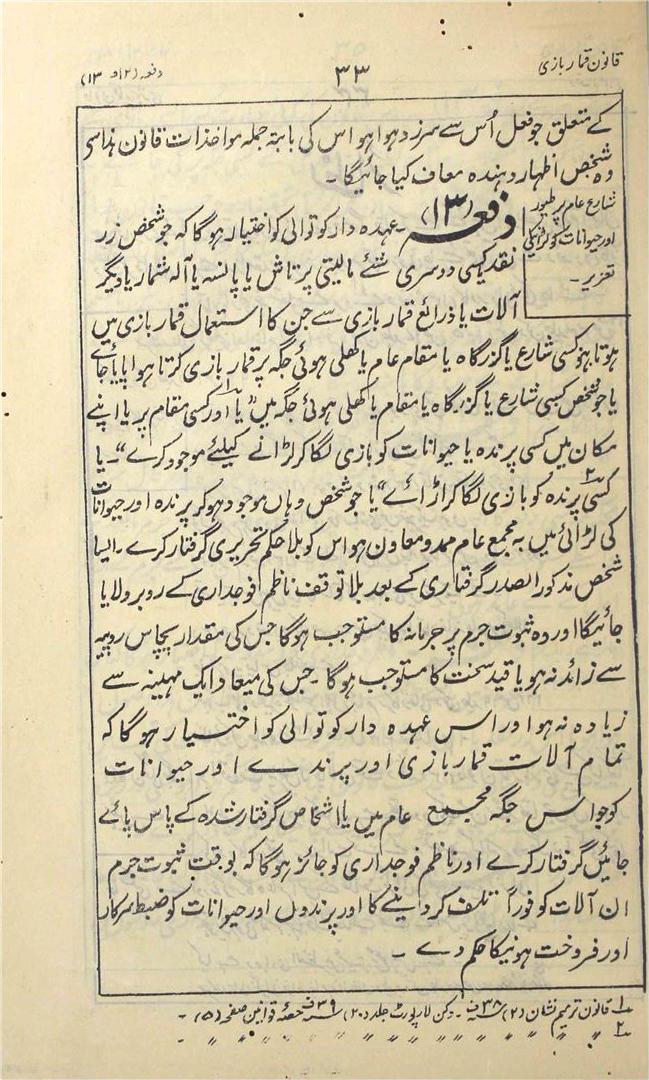 قانون قمار بازی
۳۳
دفعہ (۱۲ و ۱۳)
کے متعلق جو فعل اُس سے سرزد ہوا ہو اس کی بابتہ جملہ مواخذات قانون ہذا سے
وہ شخص اظہار دہندہ معاف کیا جائیگا۔
شارع عام پر طیور
اور حیوانات کو لڑانیکی
تعزیر۔
دفعہ (۱۳)۔ عہدہ دار کوتوالی کو اختیار ہوگا کہ جو شخص زر
نقد یا کسی دوسری شئے مالیتی پر تاش یا پانسہ یا آلہ شمار یا دیگر
آلات یا ذرائع قمار بازی سے جن کا استعمال قمار بازی میں
ہوتا ہو کسی شارع یا گزرگاہ یا مقام عام یا کھلی ہوئی جگہ پر قمار بازی کرتا ہوا پایا جائے
یا جو شخص کسی شارع یا گزرگاہ یا مقام یا کھلی ہوئی جگہ میں ”یا ۱؎ اور کسی مقام پر یا اپنے
مکان میں کسی پرندہ یا حیوانات کو بازی لگا کر لڑانے کیلئے موجود کرے“۔ یا
کسی ۲؎ پرندہ کو بازی لگا کر اڑائے“ یا جو شخص وہاں موجود ہو کر پرندہ اور حیوانات
کی لڑائی میں بہ مجمع عام ممد و معاون ہو اس کو بلا حکم تحریری گرفتار کرے۔ ایسا
شخص مذکور الصدر گرفتاری کے بعد بلا توقف ناظم فوجداری کے روبرو لایا
جائیگا اور وہ ثبوت جرم پر جرمانہ کا مستوجب ہوگا جس کی مقدار پچاس روپیہ
سے زائد نہ ہو یا قید سخت کا مستوجب ہوگا۔ جس کی میعاد ایک مہینہ سے
زیادہ نہ ہو اور اس عہدہ دار کوتوالی کو اختیار ہوگا کہ
تمام آلات قمار بازی اور پرندے اور حیوانات
کو جو اس جگہ مجمع عام میں یا اشخاص گرفتار شدہ کے پاس پائے
جائیں گرفتار کرے اور ناظم فوجداری کو جائز ہوگا کہ بوقت ثبوت جرم
ان آلات کو فوراً تلف کر دینے کا اور پرندوں اور حیوانات کو ضبط سرکار
اور فروخت ہونیکا حکم دے۔
۱؎ قانون ترمیم نشان (۲) ۳۸ سنہ ف۔ دکن لا رپورٹ جلد (۲۰) ۳۹ سنہ ف حصۂ قوانین صفحہ (۵)۔
۲؎ 〃 〃 〃 〃 〃 〃 〃 〃 〃 〃